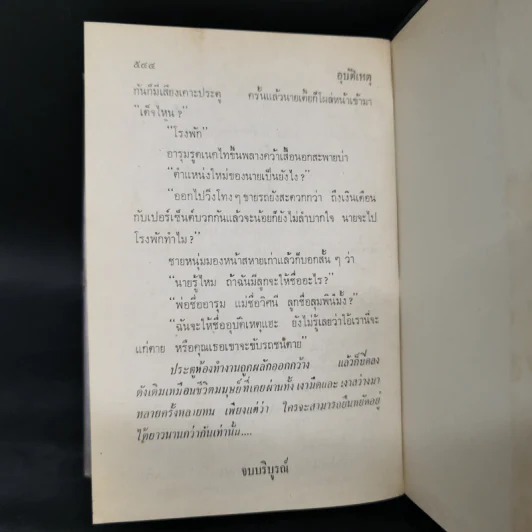 ๕๙๙
อุบัติเหตุ
กันก็มีเสียงเคาะประตู ครั้นแล้วนายเดือก็โผล่หน้าเข้ามา
“เด็จไหน?”
“โรงพัก”
อารุมรูดเนคไทขึ้นพลางคว้าเสื้อนอกสะพายบ่า
“ตำแหน่งใหม่ของนายเป็นยังไง?”
“ออกไปวิ่งโทง ๆ ขายรถยังสะดวกกว่า ถึงเงินเดือน
กับเปอร์เซ็นต์บวกกันแล้วจะน้อยก็ยังไม่ลำบากใจ นายจะไป
โรงพักทำไม?”
ชายหนุ่มมองหน้าสหายเก่าแล้วก็บอกสั้น ๆ ว่า
“นายรู้ไหม ถ้าฉันมีลูกจะให้ชื่ออะไร?”
“พ่อชื่ออารุม แม่ชื่อวิศนี ลูกชื่อสุมพินีมั้ง?”
“ฉันจะให้ชื่ออุบัติเหตุแฮะ ยังไม่รู้เลยว่าไอ้เรานี่จะ
แก่ตาย หรือคุณเธอเขาจะขับรถชนตาย”
ประตูห้องทำงานถูกผลักออกกว้าง แล้วก็ปิดลง
ดังเดิมเหมือนชีวิตมนุษย์ที่เคยผ่านทั้งเงามืดและเงาสว่างมา
หลายครั้งหลายหน เพียงแต่ว่า ใครจะสามารถยืนหยัดอยู่
ได้ยาวนานกว่ากันเท่านั้น....
จบบริบูรณ์